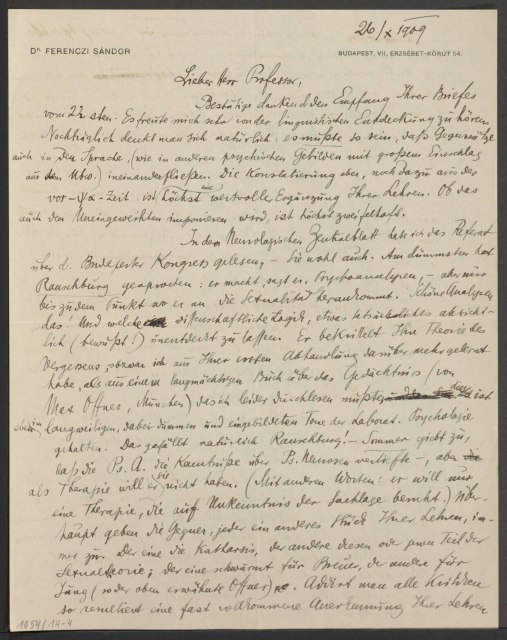 26/X 1909
Dr. FERENCZI SÁNDOR
BUDAPEST, VII., ERZSÉBET-KÖRÚT 54.
Lieber Herr Professor,
Bestätige dankend den Empfang Ihrer Briefes
vom 22 sten. Es freute mich sehr von der linguistischen Entdeckung zu hören.
Nachträglich denkt man sich natürlich: es müßte so sein, daß Gegensätze
auch in der Sprache (wie in anderen psychischen Gebilden mit großem Einschlag
aus dem Ubw.) ineinanderfließen. Die Konstatierung aber, noch dazu aus der
vor-Ψα-Zeit, ist höchst wertvoller Ergänzung Ihrer Lehren. Ob das
auch den Uneingeweihten imponieren wird, ist höchst zweifelhaft.
In dem Neurologischen Zentralblatt habe ich das Referat
über d. Budapester Kongress gelesen, – Sie wohl auch. Am dümmsten hat
Ranschburg gesprochen: er macht, sagt er, Psychoanalysen, – aber nur
bis zu dem Punkt wo er an die Sexualität herankommt. Schöne Analysen
das! Und welche wissenschaftliche Logik, etwas absicht-
lich (bewußt!) unentdeckt zu lassen. Er bekrittelt Ihre Theorie des
Vergessens, obzwar ich aus Ihrer ersten Abhandlung darüber mehr gelernt
habe, als aus einem langmächtigen Buch über das Gedächtnis (von
Max Offner, München) das ich leider durchlesen mußte; dies ist
eben im langweiligen, dabei dummen und eingebildeten Tone der laborat. Psychologie
gehalten. Das gefällt natürlich Ranschburg. – Sommer giebt zu,
daß die Ps. A. die Kenntniße über Ps. Neurosen vertiefte –, aber
als Therapie will er sie nicht haben. (Mit anderen Worten: er will nur
eine Therapie, die auf Unkenntnis der Sachlage beruht.) Über-
haupt geben die Gegner, jeder ein anderes Stück Ihrer Lehren, im-
mer zu. Der eine die Katharsis, der andere diesen oder jenen Teil der
Sexualtheorie; der eine schwärmt für Breuer, der andere für
Jung (so der oben erwähnte Offner). Addirt man alle Kritiken
so resultiert eine fast vollkommene Anerkennung Ihrer Lehren
1054/14-4